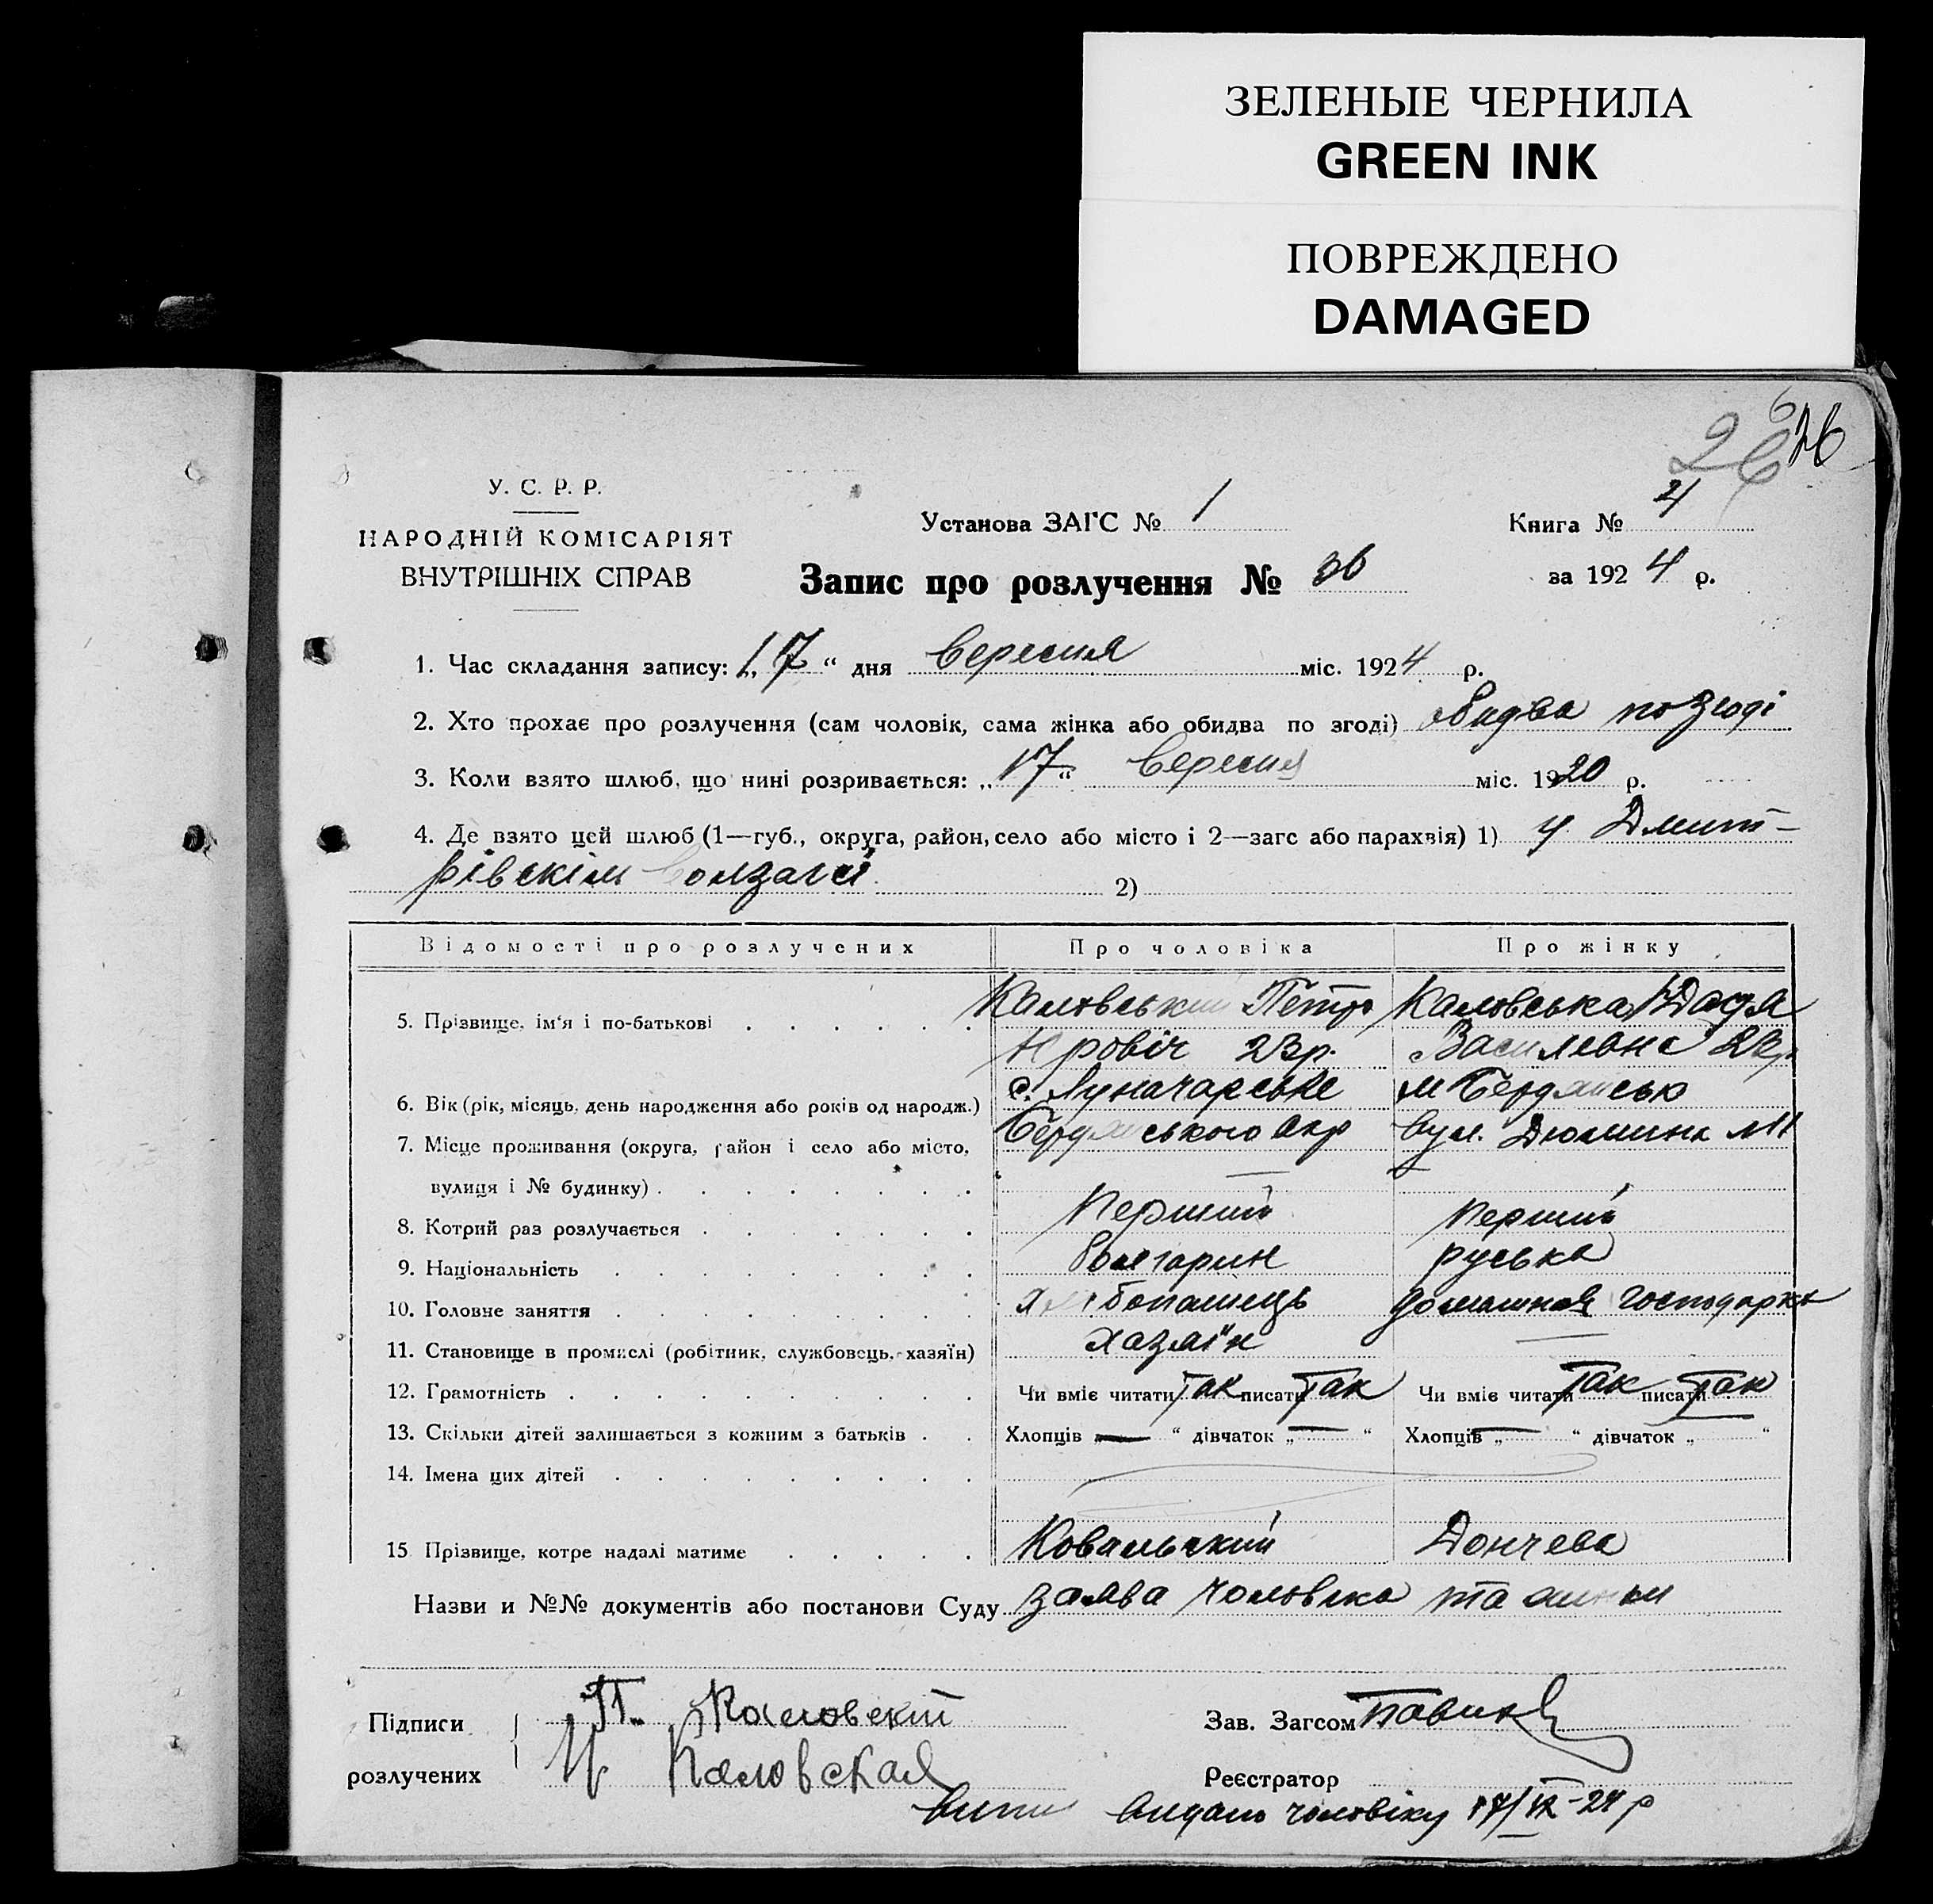 ЗЕЛЕНЫЕ ЧЕРНИЛА
GREEN INK
ПОВРЕЖДЕНО
DAMAGED
26
У. С. Р. Р.
НАРОДНІЙ КОМІСАРІЯТ
ВНУТРІШНІХ СПРАВ
Установа ЗАГС № 1
Книга № 4
Запис про розлучення № 36
за 1924 р.
1. Час складання запису: „17“ дня вересня міс. 1924 р.
2. Хто прохає про розлучення (сам чоловік, сама жінка або обидва по згоді) обидва по згоді
3. Коли взято шлюб, що нині розривається: „17“ вересня міс. 1920 р.
4. Де взято цей шлюб (1—губ., округа, район, село або місто і 2—загс або парахвія) 1) у Дмит-
рівскім 2)
Відомості про розлучених Про чоловіка Про жінку
5. Прізвище, ім‘я і по-батькові Каловський Петро Каловська
23 р. Василевна 23 р.
6. Вік (рік, місяць, день народження або років од народж.) с. Луначарське м Бердянськ
7. Місце проживання (округа, район і село або місто, Бердянського Окр вул. Дюмина №11
вулиця і № будинку)
8. Котрий раз розлучається Перший перший
9. Національність болгарин руська
10. Головне заняття хлібопашець домашня господарка
11. Становище в промислі (робітник, службовець, хазяїн) хазяїн —
12. Грамотність Чи вміє читати так писати так Чи вміє читати так писати так
13. Скільки дітей залишається з кожним з батьків Хлопців „—“ дівчаток „—“ Хлопців „—“ дівчаток „—“
14. Імена цих дітей
15 Прізвище, котре надалі матиме Ковальский Дончева
Назви и №№ документів або постанови Суду заява чоловіка та
Підписи П. Каловскій Зав. Загсом
розлучених Каловская Реєстратор
видано чоловіку 17/IX-24 р